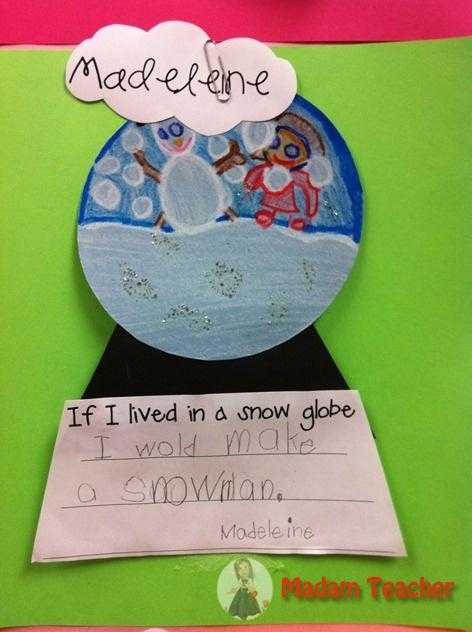 Madeleine
If I lived in a snow globe
I wold make
a snowman.
Madeleine
Madam Teacher